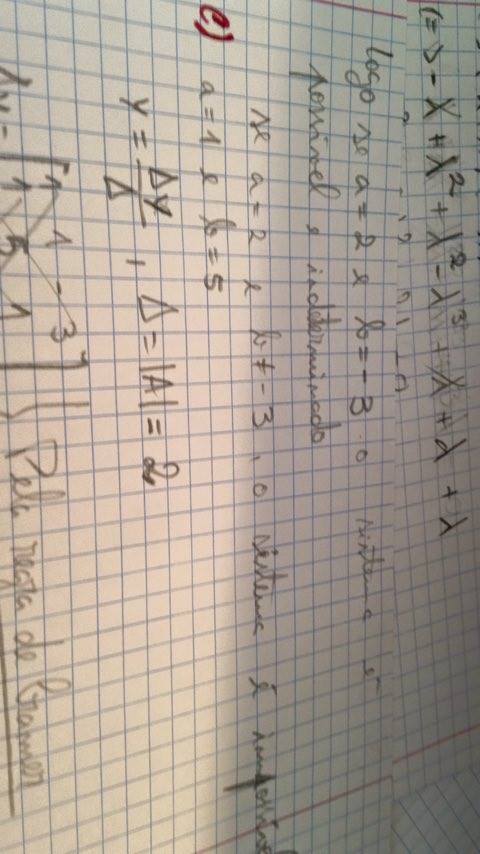 (=> - λ + λ² + λ² - λ³ + λ + λ + λ
logo se a = 2 e b = -3 o sistema é
possível e indeterminado
se a = 2 e b ≠ -3, o sistema é impossível
e) a = 1 e b = 5
y = Δy/Δ , Δ = |A| = 2
1 1 -3
Δy = 1 5 1 Pela regra de Cramer